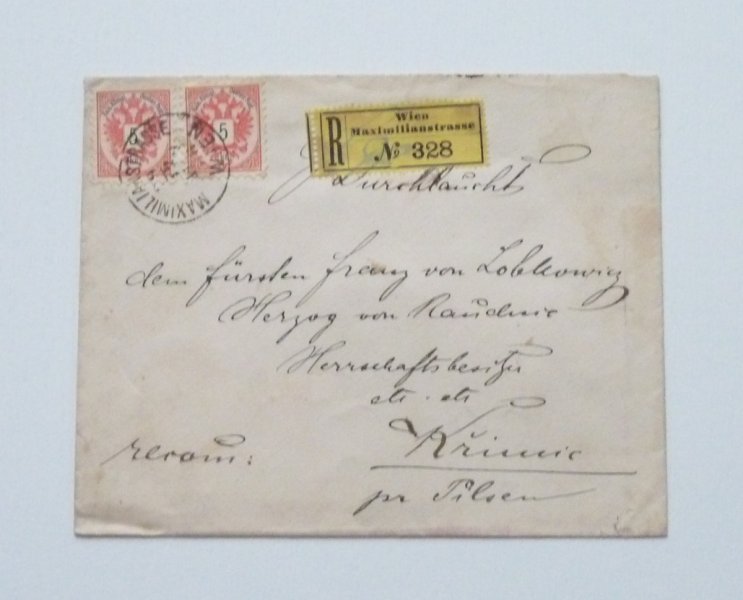 5 5
WIEN MAXIMILIANSTRASSE
R Wien
Maximilianstrasse
№ 328
Durchlaucht
dem Fürsten Franz von Lobkowicz
Herzog von Raudnic
Herrschaftsbesitzer
etc. etc
Křimic
recom:
pr Pilsen